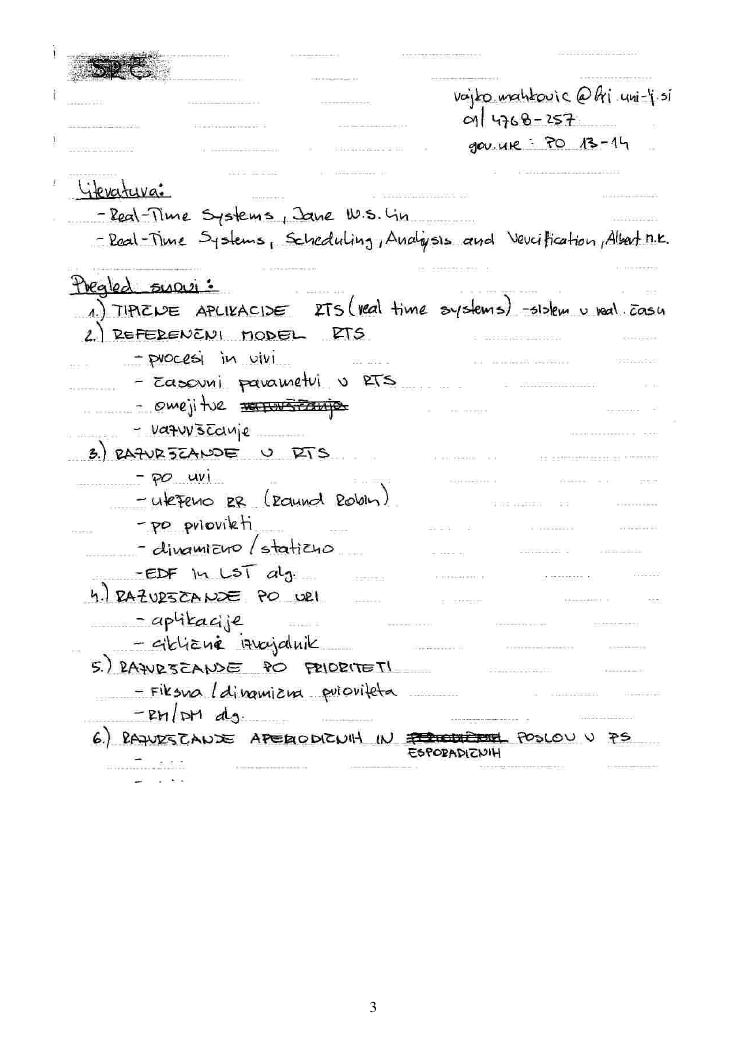 SRČ
vojko.mahkovic@fri.uni-lj.si
01/4768-257
gov.ure: PO 13-14
Literatura:
- Real-Time Systems, Jane W.S. Lin
- Real-Time Systems, Scheduling, Analysis and Verification, Albert M.K.
Pregled snovi:
1.) TIPIČNE APLIKACIJE RTS (real time systems) - sistem v real. času
2.) REFERENČNI MODEL RTS
- procesi in viri
- časovni parametri v RTS
- omejitve
- razvrščanje
3.) RAZVRŠČANJE V RTS
- po uri
- uteženo RR (Raund Robin)
- po prioriteti
- dinamično / statično
- EDF in LST alg.
4.) RAZVRŠČANJE PO URI
- aplikacije
- ciklične izvajalnik
5.) RAZVRŠČANJE PO PRIORITETI
- Fiksna / dinamična prioriteta
- RM/DM alg.
6.) RAZVRŠČANJE APERIODIČNIH IN POSLOV V PS
ESPORADIČNIH
- ...
- ...
3